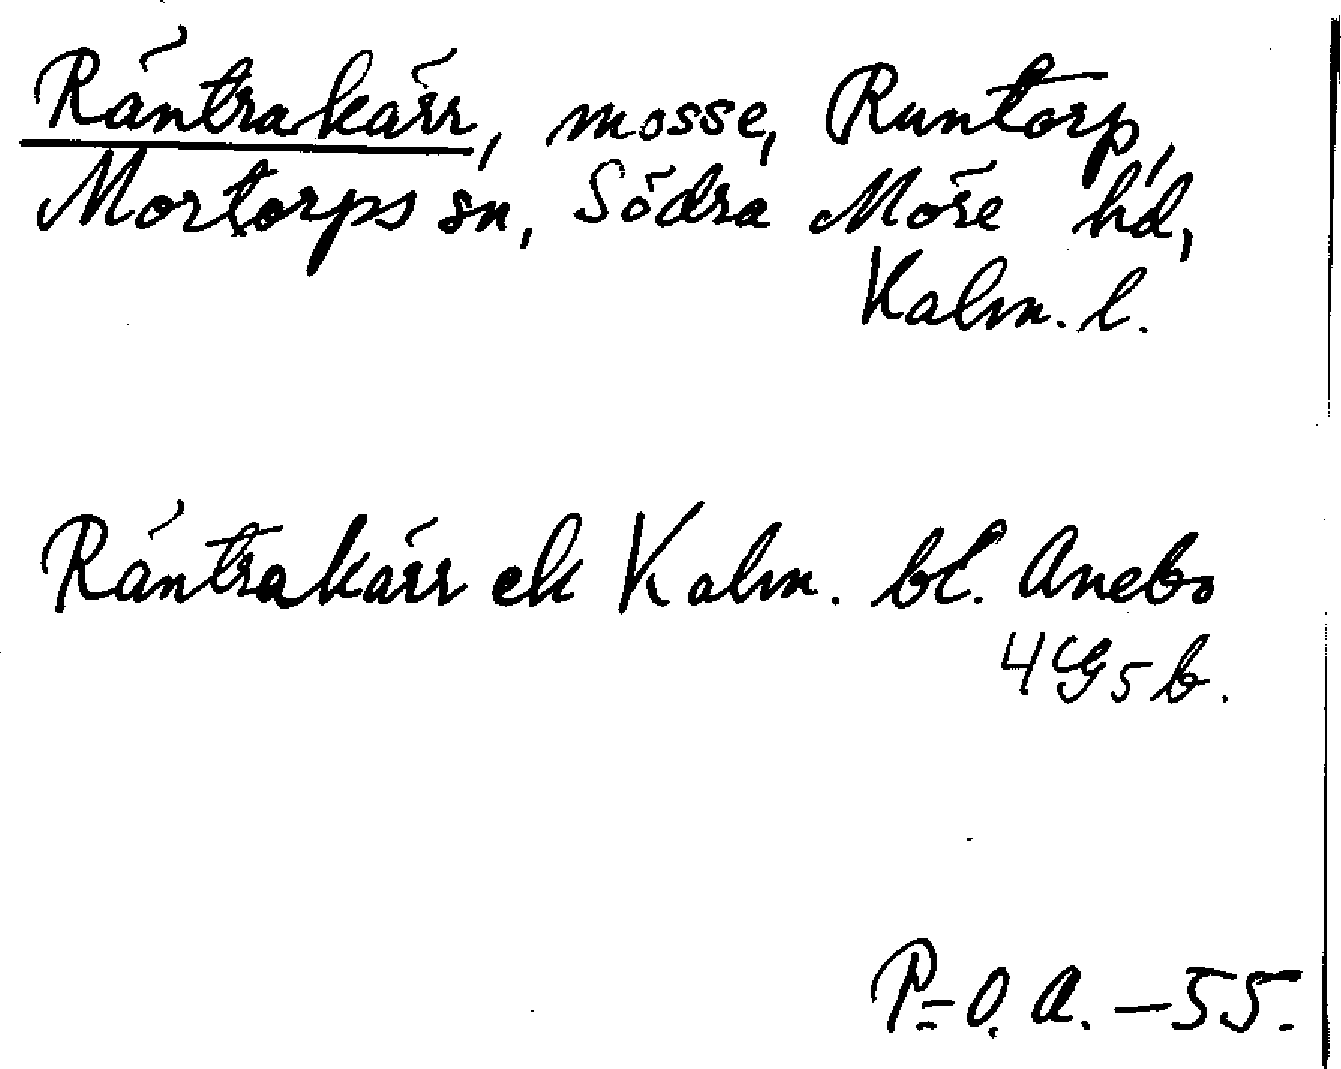 Räntrakärr, mosse, Runtorp,
Mortorps sn, Södra Möre hd,
Kalm. l.
Räntrakärr ek Kalm. bl. Anebo
4G5b.
P.-O. A. – 55.